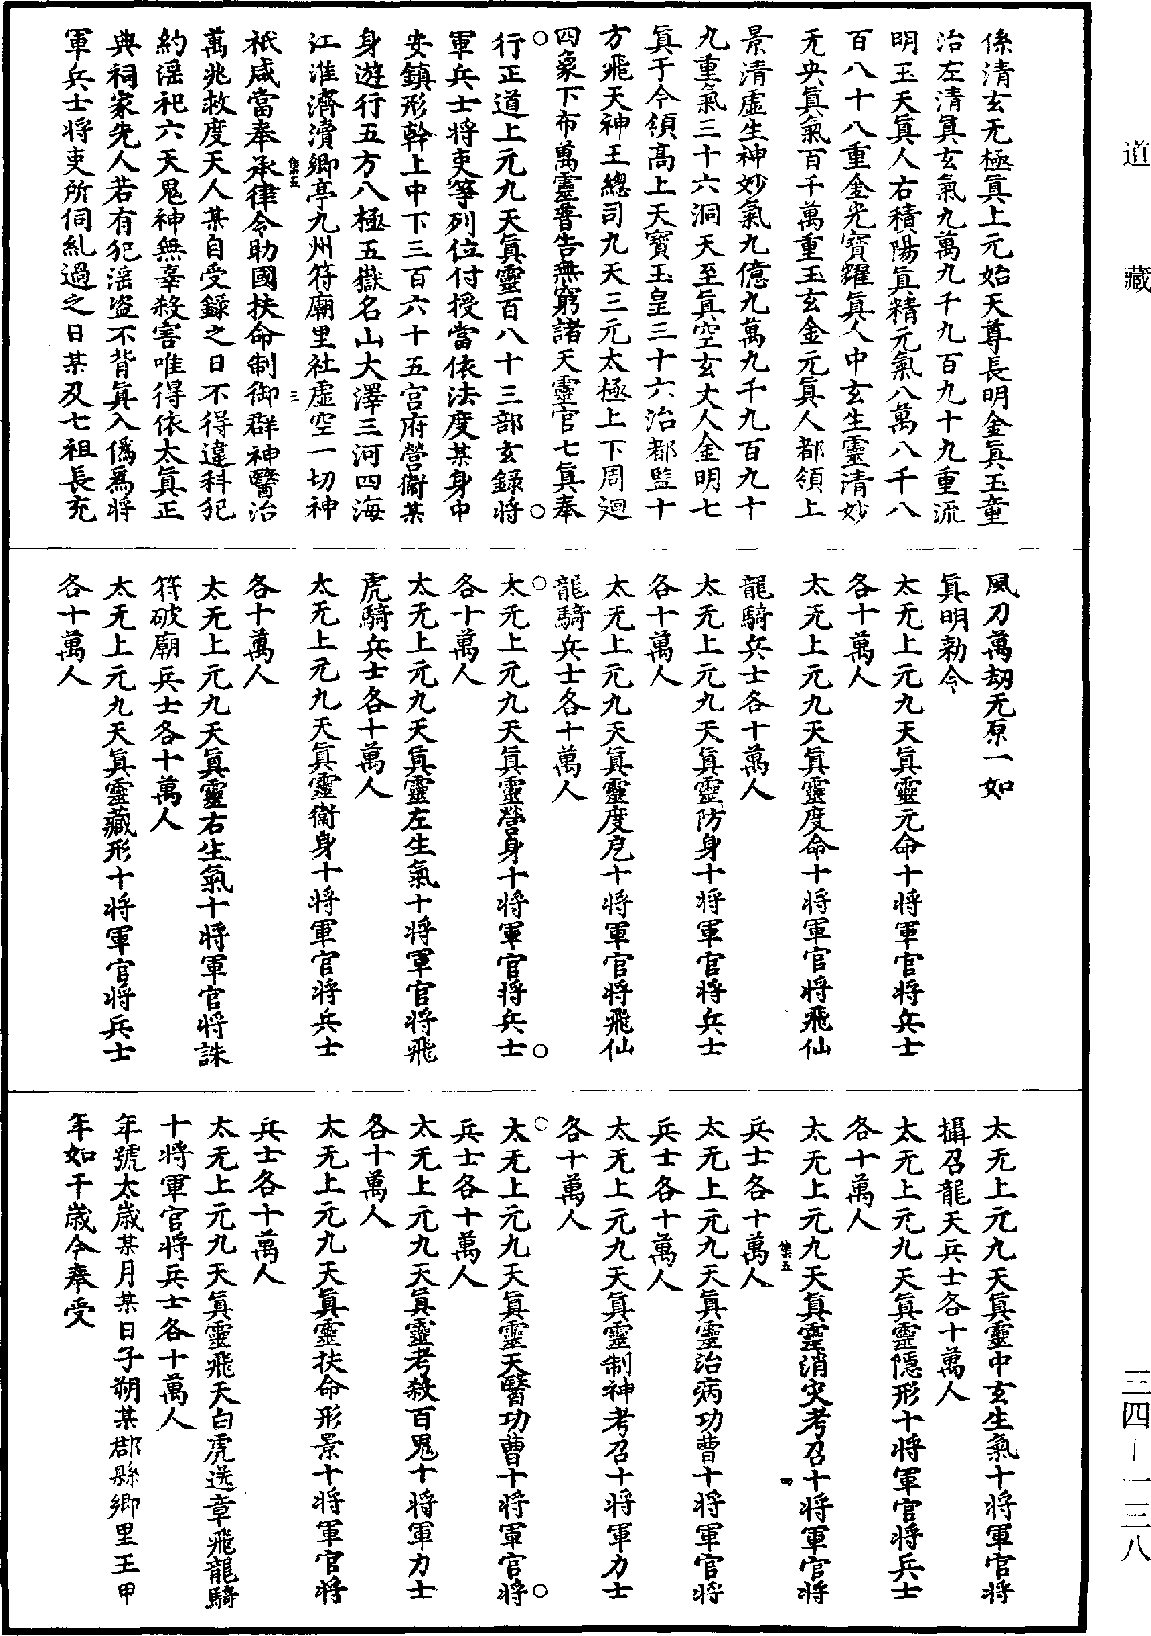 係清玄无極眞上元始天尊長明金眞玉童
治左清眞玄氣九萬九千九百九十九重流
明玉天眞人右積陽眞精元氣八萬八千八
百八十八重金光寶鑵眞人中玄生靈清妙
无央眞氣百千萬重玉玄金元眞人都領上
景清虛生神妙氣九億九萬九千九百九十
九重氣三十六洞天至眞空玄丈人金明七
眞于今領高上天寶玉皇三十六治都監十
方飛天神王總司九天三元太極上下周迴
四象下布萬靈普告無窮諸天靈官七眞奉
行正道上元九天眞靈百八十三部玄錄將
軍兵士將吏等列位付授當依法度某身中
安鎮形幹上中下三百六十五宮府營衞某
身遊行五方八極五嶽名山大澤三河四海
江淮濟瀆鄉亭九州符廟里社虛空一切神
祇咸當奉承律令助國扶命制御群神醫治
萬兆救度天人某自受錄之日不得違科犯
約淫祀六天鬼神無辜殺害唯得依太眞正
典祠家先人若有犯淫盜不背眞入僞爲將
軍兵士將吏所伺糺過之日某及七祖長充
風刀萬劫无原一如
眞明勑令
太无上元九天眞靈元命十將軍官將兵士
各十萬人
太无上元九天眞靈度命十將軍官將飛仙
龍騎兵士各十萬人
太无上元九天眞靈防身十將軍官將兵士
各十萬人
太无上元九天眞靈度厄十將軍官將飛仙
龍騎兵士各十萬人
太无上元九天眞靈營身十將軍官將兵士
各十萬人
太无上元九天眞靈左生氣十將軍官將飛
虎騎兵士各十萬人
太无上元九天眞靈衞身十將軍官將兵士
各十萬人
太无上元九天眞靈右生氣十將軍官將誅
符破廟兵士各十萬人
太无上元九天眞靈藏形十將軍官將兵士
各十萬人
太无上元九天眞靈中玄生氣十將軍官將
攝召龍天兵士各十萬人
太无上元九天眞靈隱形十將軍官將兵士
各十萬人
太无上元九天眞靈消灾考召十將軍官將
兵士各十萬人
太无上元九天眞靈治病功曹十將軍官將
兵士各十萬人
太无上元九天眞靈制神考召十將軍力士
各十萬人
太无上元九天眞靈天醫功曹十將軍官將
兵士各十萬人
太无上元九天眞靈考殺百鬼十將軍力士
各十萬人
太无上元九天眞靈扶命形景十將軍官將
兵士各十萬人
太无上元九天眞靈飛天白虎送章飛龍騎
十將軍官將兵士各十萬人
年號太歲某月某日子朔某郡縣鄉里王甲
年如干歲今奉受
道藏
三四－一三八